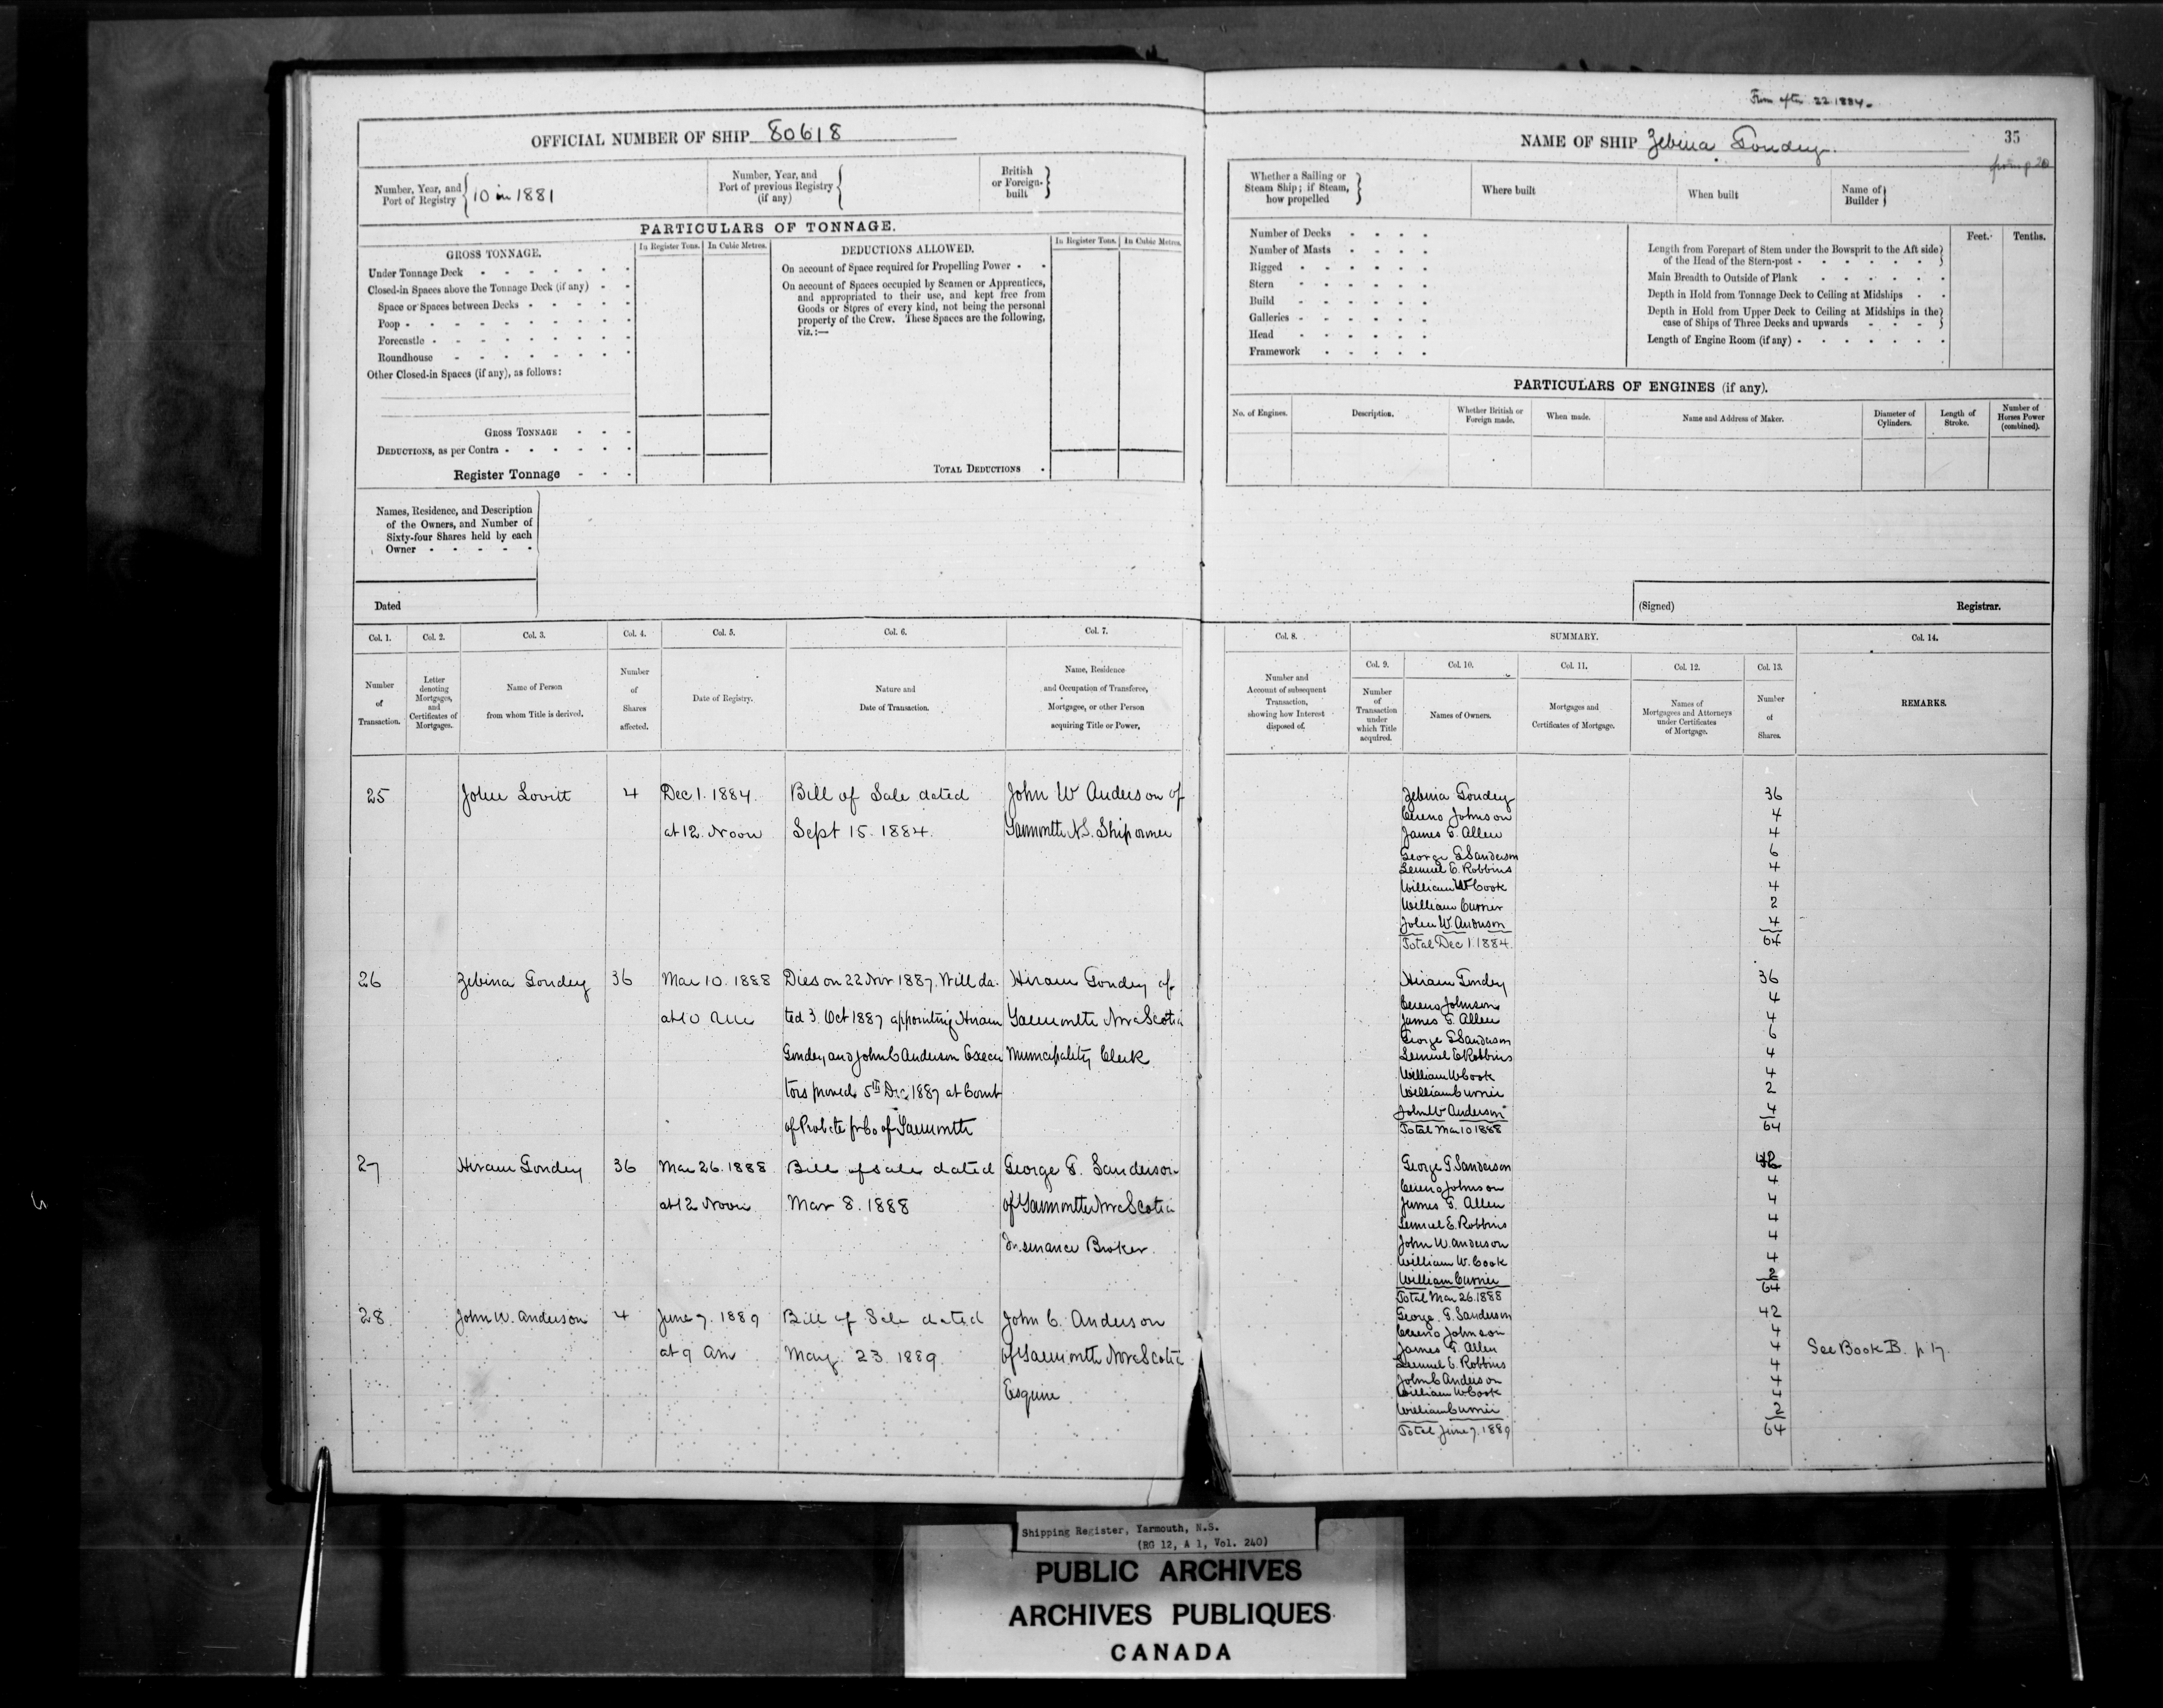 From after 22 1884.
OFFICIAL NUMBER OF SHIP 80618
NAME OF SHIP Zebina Goudey.
35
from p 20
Number, Year, and Port of Registry
10 in 1881
Number, Year, and Port of previous Registry (if any)
British or Foreign-built
Whether a Sailing or Steam Ship; if Steam, how propelled
Where built
When built
Name of Builder
PARTICULARS OF TONNAGE.
GROSS TONNAGE.
In Register Tons.
In Cubic Metres.
Under Tonnage Deck
Closed-in Spaces above the Tonnage Deck (if any)
Space or Spaces between Decks
Poop
Forecastle
Roundhouse
Other Closed-in Spaces (if any), as follows:
GROSS TONNAGE
DEDUCTIONS, as per Contra
Register Tonnage
DEDUCTIONS ALLOWED.
In Register Tons.
In Cubic Metres.
On account of Space required for Propelling Power
On account of Spaces occupied by Seamen or Apprentices,
and appropriated to their use, and kept free from
Goods or Stores of every kind, not being the personal
property of the Crew. These Spaces are the following,
viz.:—
TOTAL DEDUCTIONS
Number of Decks
Number of Masts
Rigged
Stern
Build
Galleries
Head
Framework
Feet.
Tenths.
Length from Forepart of Stem under the Bowsprit to the Aft side
of the Head of the Stern-post
Main Breadth to Outside of Plank
Depth in Hold from Tonnage Deck to Ceiling at Midships
Depth in Hold from Upper Deck to Ceiling at Midships in the
case of Ships of Three Decks and upwards
Length of Engine Room (if any)
PARTICULARS OF ENGINES (if any).
No. of Engines.
Description.
Whether British or Foreign made.
When made.
Name and Address of Maker.
Diameter of Cylinders.
Length of Stroke.
Number of Horses Power (combined).
Names, Residence, and Description
of the Owners, and Number of
Sixty-four Shares held by each
Owner
Dated
(Signed)
Registrar.
Col. 1.
Col. 2.
Col. 3.
Col. 4.
Col. 5.
Col. 6.
Col. 7.
Col. 8.
SUMMARY.
Col. 9.
Col. 10.
Col. 11.
Col. 12.
Col. 13.
Col. 14.
Number of Transaction.
Letter denoting Mortgages, and Certificates of Mortgages.
Name of Person from whom Title is derived.
Number of Shares affected.
Date of Registry.
Nature and Date of Transaction.
Name, Residence and Occupation of Transferee, Mortgagee, or other Person acquiring Title or Power.
Number and Account of subsequent Transaction, showing how Interest disposed of.
Number of Transaction under which Title acquired.
Names of Owners.
Mortgages and Certificates of Mortgage.
Names of Mortgagees and Attorneys under Certificates of Mortgage.
Number of Shares.
REMARKS.
25
John Lovitt
4
Dec 1. 1884
at 12. Noon
Bill of Sale dated
Sept 15. 1884.
John W Anderson of
Yarmouth N.S. Shipowner
Zebina Goudey 36
Cereno Johnson 4
James G. Allen 4
George G Sanderson 6
Lemuel E. Robbins 4
William W Cook 4
William Currier 2
John W. Anderson 4
Total Dec 1. 1884. 64
26
Zebina Goudey
36
Mar 10. 1888
at 10 am
Dies on 22 Nov 1887. Will da-
ted 3. Oct 1887 appointing Hiram
Goudey and John C Anderson Execu
tors proved 5th Dec 1887 at Court
of Probate for Co of Yarmouth
Hiram Goudey of
Yarmouth Nova Scotia
Municipality Clerk
Hiram Goudey 36
Cereno Johnson 4
James G. Allen 4
George G Sanderson 6
Lemuel E Robbins 4
William W Cook 4
William Currier 2
John W Anderson 4
Total Mar 10 1888 64
27
Hiram Goudey
36
Mar 26. 1888
at 12 Noon
Bill of Sale dated
Mar 8. 1888
George G. Sanderson
of Yarmouth Nova Scotia
Insurance Broker.
George G Sanderson 42
Cereno Johnson 4
James G. Allen 4
Lemuel E. Robbins 4
John W. Anderson 4
William W. Cook 4
William Currier 2
Total Mar 26. 1888 64
28
John W. Anderson
4
June 7. 1889
at 9 am
Bill of Sale dated
May 23. 1889
John C. Anderson
of Yarmouth Nova Scotia
Esquire
George G. Sanderson 42
Cereno Johnson 4
James G. Allen 4
Lemuel E. Robbins 4
John C Anderson 4
William W Cook 4
William Currier 2
Total June 7. 1889 64
See Book B. p 17.
Shipping Register, Yarmouth, N.S.
(RG 12, A 1, Vol. 240)
PUBLIC ARCHIVES
ARCHIVES PUBLIQUES
CANADA